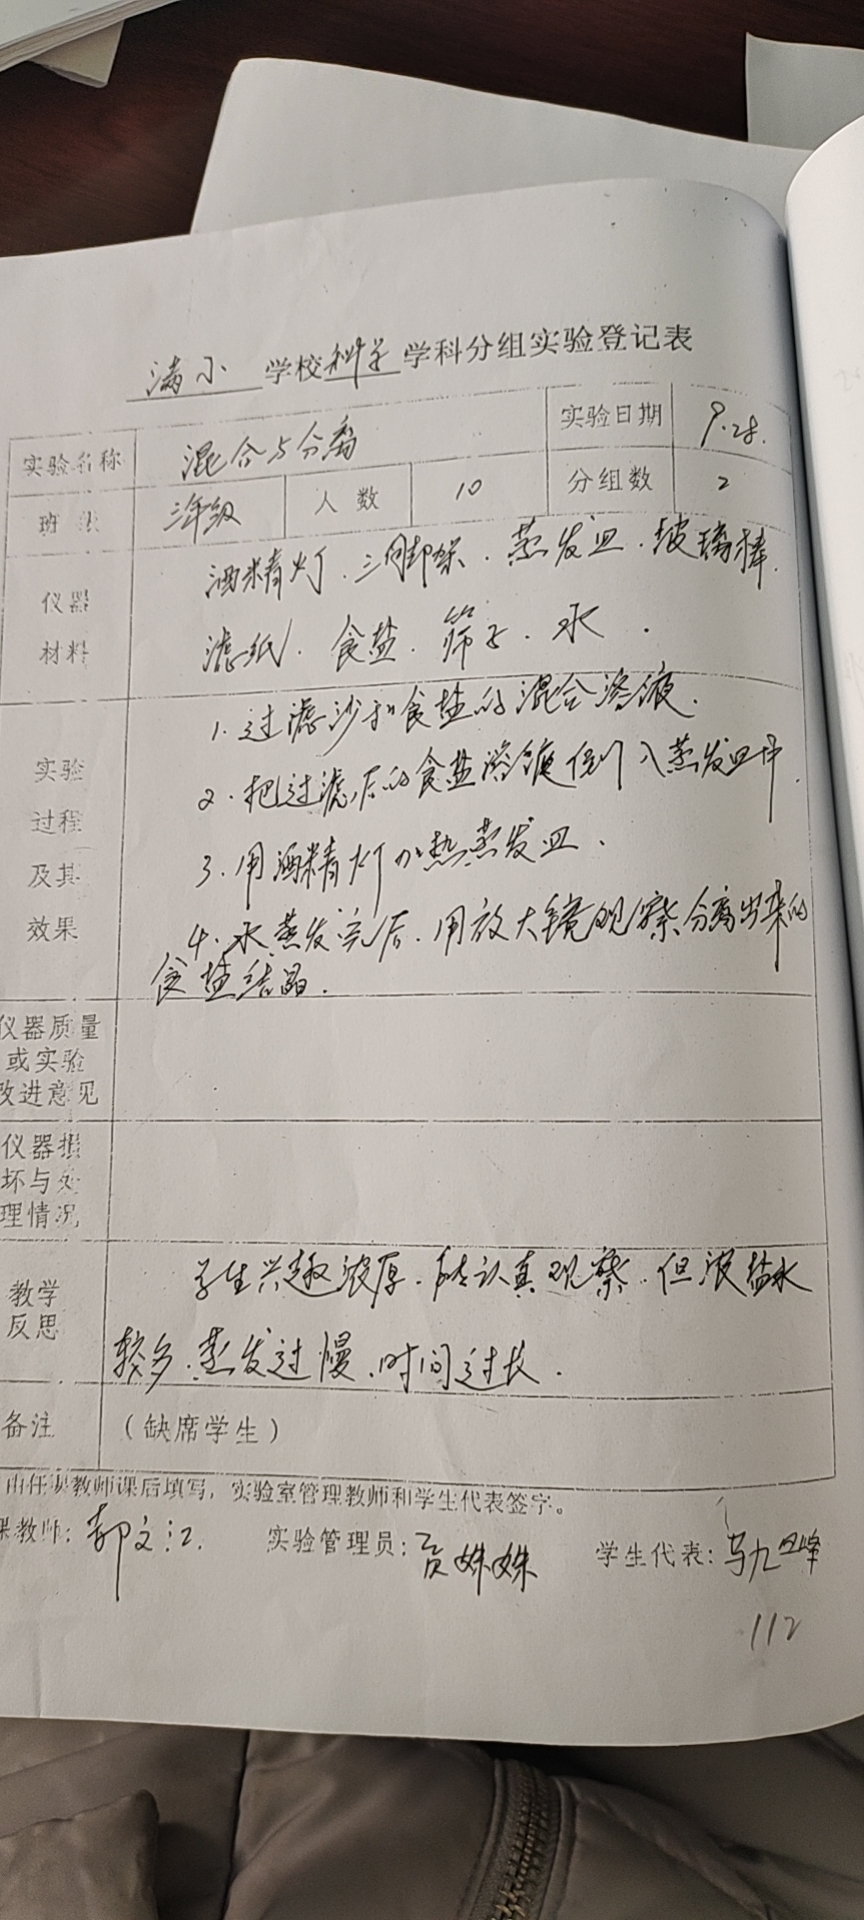 满小 学校 科学 学科分组实验登记表
实验名称 混合与分离 实验日期 9.28.
班 级 三年级 人 数 10 分组数 2
仪器材料 酒精灯、三角架、蒸发皿、玻璃棒、
滤纸、食盐、筛子、水.
实验过程及其效果 1.过滤沙和食盐的混合溶液.
2.把过滤后的食盐溶液倒入蒸发皿中.
3.用酒精灯加热蒸发皿.
4.水蒸发完后,用放大镜观察分离出来的
食盐结晶.
仪器质量
或实验
改进意见
仪器损
坏与处
理情况
教学反思 学生兴趣浓厚.能认真观察.但浓盐水
较多.蒸发过慢.时间过长.
备注 (缺席学生)
由任课教师课后填写,实验室管理教师和学生代表签字。
课教师: 郝文江. 实验管理员: 贡姝姝 学生代表: 马九峰
112